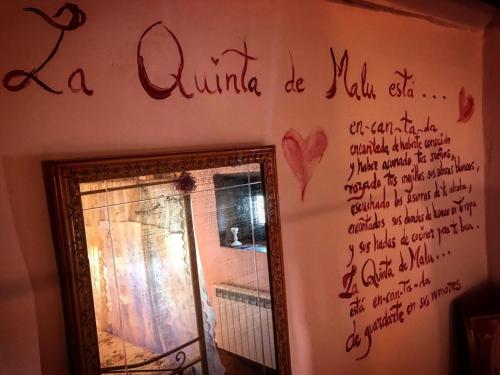 La Quinta de Malu está ...
en-can-ta-da
encantada de haberte conocido
y haber acunado tus sueños,
rozado tus mejillas sus sábanas blancas,
escuchado los susurros de tu alcoba,
encantados sus duendes de humear en tu ropa
y sus hadas de cocinar para ti bien.
La Quinta de Malu...
está en-can-ta-da
de guardarte en sus rumores